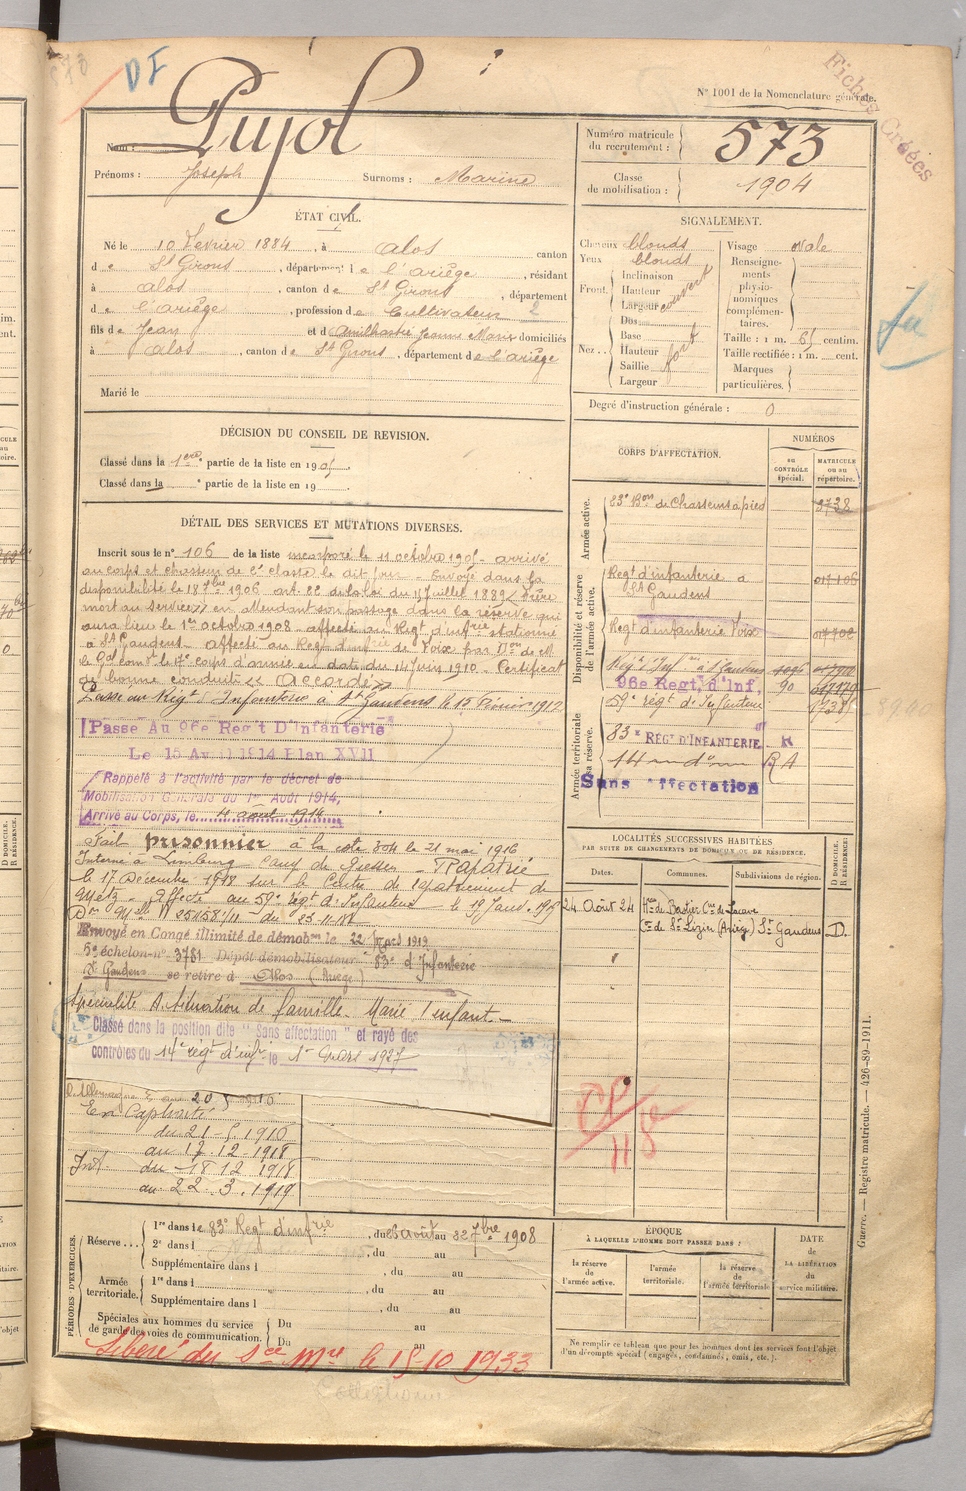 573
DI
Nº 1001 de la Nomenclature générale.
Fiches Créées
Nom : Pujol
Prénoms : Joseph Surnoms : Marine
Numéro matricule du recrutement : 573
Classe de mobilisation : 1904
ÉTAT CIVIL.
Né le 10 Février 1884, à Alos canton
de St Girons, département de l'ariège, résidant
à Alos, canton de St Girons, département
de l'ariège, profession de Cultivateur 2
fils de Jean et d Jeanne Marie domiciliés
à Alos, canton de St Girons, département de l'ariège
Marié le
SIGNALEMENT.
Cheveux blonds
Yeux blonds
Front. Inclinaison
Hauteur
Largeur couvert
Nez.. Dos
Base
Hauteur
Saillie fort
Largeur
Visage ovale
Renseignements physionomiques complémentaires.
Taille : 1 m. 65 centim.
Taille rectifiée : 1 m. cent.
Marques particulières.
Degré d'instruction générale : 0
DÉCISION DU CONSEIL DE REVISION.
Classé dans la 1ere partie de la liste en 1905.
Classé dans la º partie de la liste en 19
CORPS D'AFFECTATION.
NUMÉROS
au CONTRÔLE spécial.
MATRICULE ou au répertoire.
Armée active.
83e Bon de Chasseurs à pied 3738
Disponibilité et réserve de l'armée active.
Regt d'infanterie à St Gaudens
Regt d'infanterie Foix
Régt d'Infrie à St Gaudens
96e Regt, d'Inf, 90
59e régt d'Infanterie
Armée territoriale et sa réserve.
83e REGT D'INFANTERIE R
14 RA
Sans Affectation
DÉTAIL DES SERVICES ET MUTATIONS DIVERSES.
Inscrit sous le nº 106 de la liste incorporé le 11 octobre 1905 - arrivé
au corps et chasseur de 2e classe le dit jour - Envoyé dans la
disponibilité le 18 7bre 1906 art. 22 de la loi du 15 juillet 1889 (Frère
mort au service) en attendant son passage dans la réserve qui
aura lieu le 1er octobre 1908 - affecté au Regt d'infrie stationné
à St Gaudens - affecté au Regt d'infrie de Foix par Don de M.
le Gal Comt le 17e corps d'armée en date du 14 juin 1910 - Certificat
de bonne conduite « Accordé »
Passé au Régt d'Infanterie à St Gaudens le 15 Février 1912
Passé Au 96e Regt D'Infanterie
Le 15 Avril 1914 Plan XVII
Rappelé à l'activité par le décret de
Mobilisation Générale du 1er Août 1914,
Arrivé au Corps, le 4 août 1914
Fait prisonnier à la cote 304 le 21 mai 1916
Interné à Limburg camp de Giessen - Rapatrié
le 17 Décembre 1918 sur le Centre de rapatriement de
Metz - Affecté au 59e régt d'Infanterie le 19 Janv. 1919
Envoyé en Congé illimité de démobon le 22 Mars 1919
5e échelon nº 3781 Dépôt démobilisateur 83e d'Infanterie
St Gaudens se retire à Alos (Ariège)
Spécialité A. Situation de famille - Marié 1 enfant -
Classé dans la position dite "Sans affectation" et rayé des
contrôles du 14e régt d'infie le 1er Mars 1927
En Captivité
du 21-5-1916
au 17-12-1918
Int. du 18 12 1918
au 22.3.1919
LOCALITÉS SUCCESSIVES HABITÉES
PAR SUITE DE CHANGEMENTS DE DOMICILE OU DE RÉSIDENCE.
Dates.
Communes.
Subdivisions de région.
D DOMICILE. R RÉSIDENCE.
24 Août 24
Cne de St Lizier (Ariège) St Gaudens D.
PÉRIODES D'EXERCICES.
Réserve... 1re dans le 83e Regt d'infrie, du 26 Août au 22 7bre 1908
2e dans l , du au
Supplémentaire dans l , du au
Armée territoriale. 1re dans l , du au
Supplémentaire dans l , du au
Spéciales aux hommes du service de garde des voies de communication. Du au
Du au
ÉPOQUE
À LAQUELLE L'HOMME DOIT PASSER DANS :
la réserve de l'armée active.
l'armée territoriale.
la réserve de l'armée territoriale
DATE de LA LIBÉRATION du service militaire.
Ne remplir ce tableau que pour les hommes dont les services font l'objet d'un décompte spécial (engagés, condamnés, omis, etc.).
Libéré du sce mre le 15 10 1933
Guerre. — Registre matricule. — 426-89-1911.